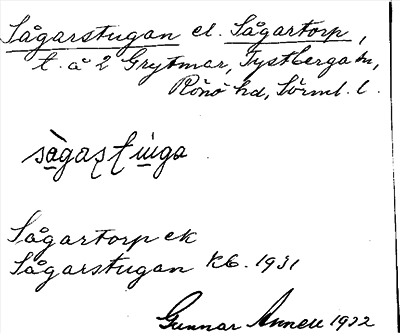 Sågarstugan el. Sågartorp,
t. å 2 Grytmar, Tystberga sn,
Rönö hd, Sörml. l.
Sågartorp ek
Sågarstugan KB. 1931
Gunnar 1932